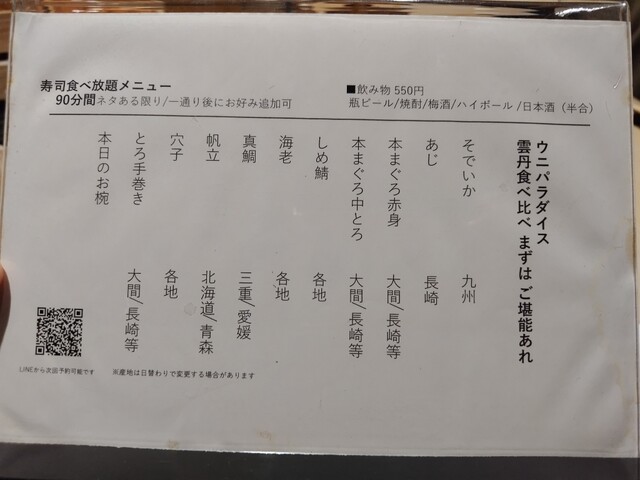 寿司食べ放題メニュー
90分間ネタある限り/一通り後にお好み追加可
■飲み物 550円
瓶ビール/焼酎/梅酒/ハイボール/日本酒（半合）
ウニパラダイス
雲丹食べ比べ まずは ご堪能あれ
そでいか 九州
あじ 長崎
本まぐろ赤身 大間/長崎等
本まぐろ中とろ 大間/長崎等
しめ鯖 各地
海老 各地
真鯛 三重/愛媛
帆立 北海道/青森
穴子 各地
とろ手巻き 大間/長崎等
本日のお椀
LINEから次回予約可能です
※産地は日替わりで変更する場合があります